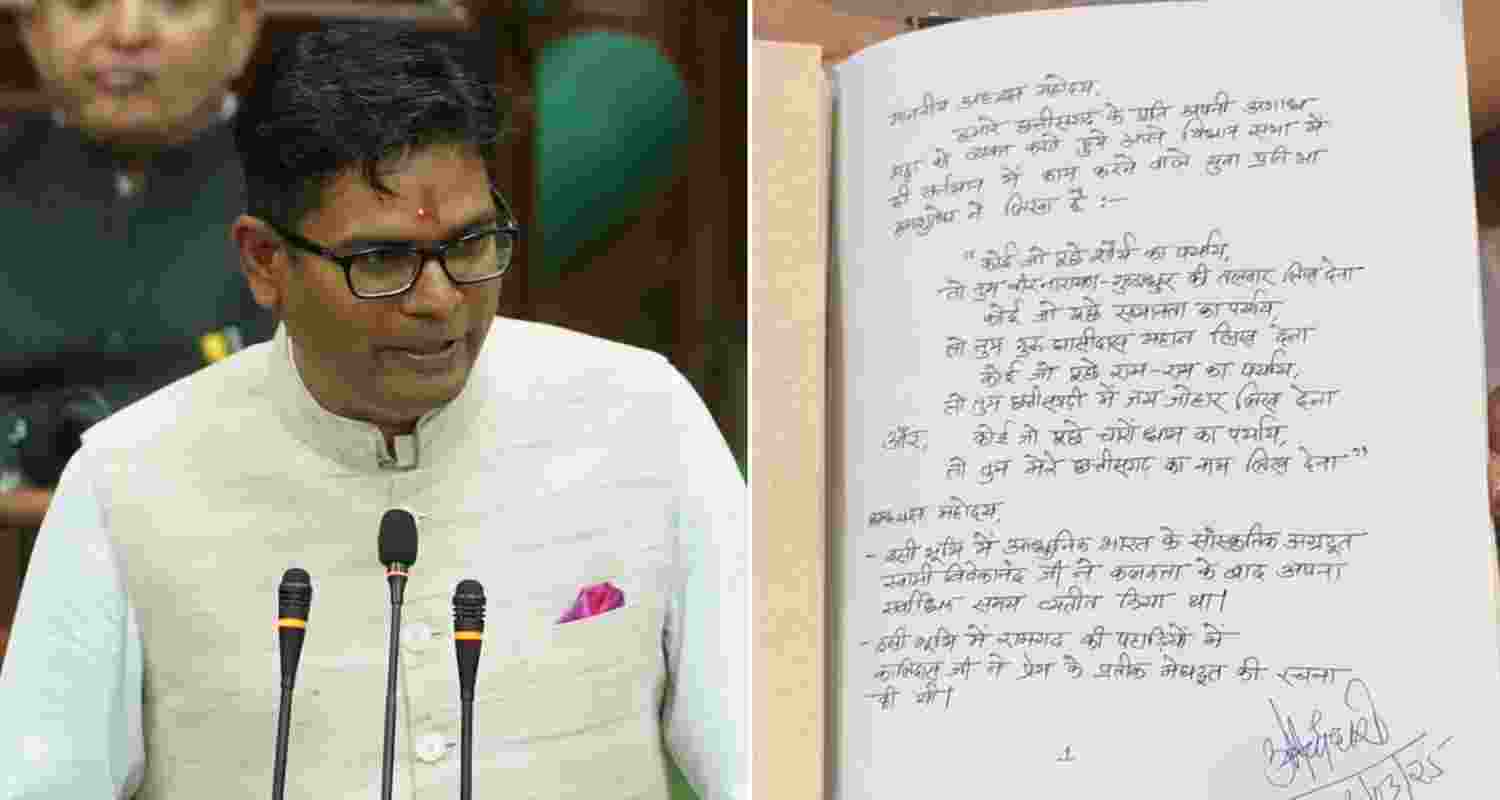 माननीय अध्यक्ष महोदय,
हमारे छत्तीसगढ़ के प्रति अपनी अगाध
श्रद्धा को व्यक्त करते हुये अपने विधान सभा में
ही वर्तमान में काम करने वाले युवा प्रतिभा
ने लिखा है :—
"कोई जो पूछे शौर्य का पर्याय,
तो तुम वीरनारायण-गुण्डाधुर की तलवार लिख देना
कोई जो पूछे समानता का पर्याय,
तो तुम गुरु घासीदास महान लिख देना
कोई जो पूछे राम-राम का पर्याय,
तो तुम छत्तीसगढ़ी में जय जोहार लिख देना
और, कोई जो पूछे चारों धाम का पर्याय,
तो तुम मेरे छत्तीसगढ़ का नाम लिख देना"
अध्यक्ष महोदय,
- इसी भूमि में आधुनिक भारत के सांस्कृतिक अग्रदूत
स्वामी विवेकानंद जी ने कलकत्ता के बाद अपना
सर्वाधिक समय व्यतीत किया था।
- इसी भूमि में रामगढ़ की पहाड़ियों में
कालिदास जी ने प्रेम के प्रतीक मेघदूत की रचना
की थी।
1